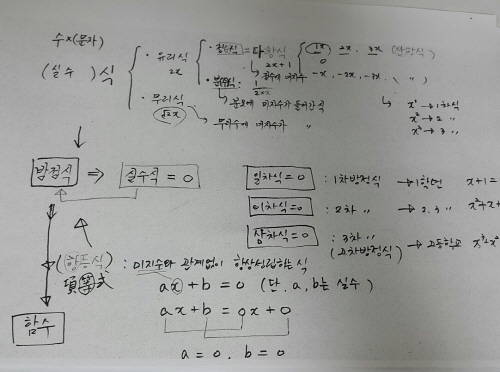 수×(문자)
(실수) 식
· 유리식
2x
· 정수식 = 다항식
2x+1
1x 2x, 3x (단항식)
0
-x, -2x, -3x, (")
· 분수식:
→ 분모에 미지수가 들어간식
· 무리식
√2x
→ 무리수에 미지수가 "
→ x¹ → 1차식
x² → 2 "
x³ → 3 "
방정식 ⇒ 실수식 = 0
일차식=0 : 1차방정식 → 1학년 x+1=
이차식=0 : 2차 " → 2.3 " x²+x+
삼차식=0 : 3차 " (고차방정식) → 고등학교
(항등식) : 미지수와 관계없이 항상성립하는 식
等式
ax+b = 0 (단, a, b는 실수)
ax+b = 0x+0
함수
a = 0, b = 0